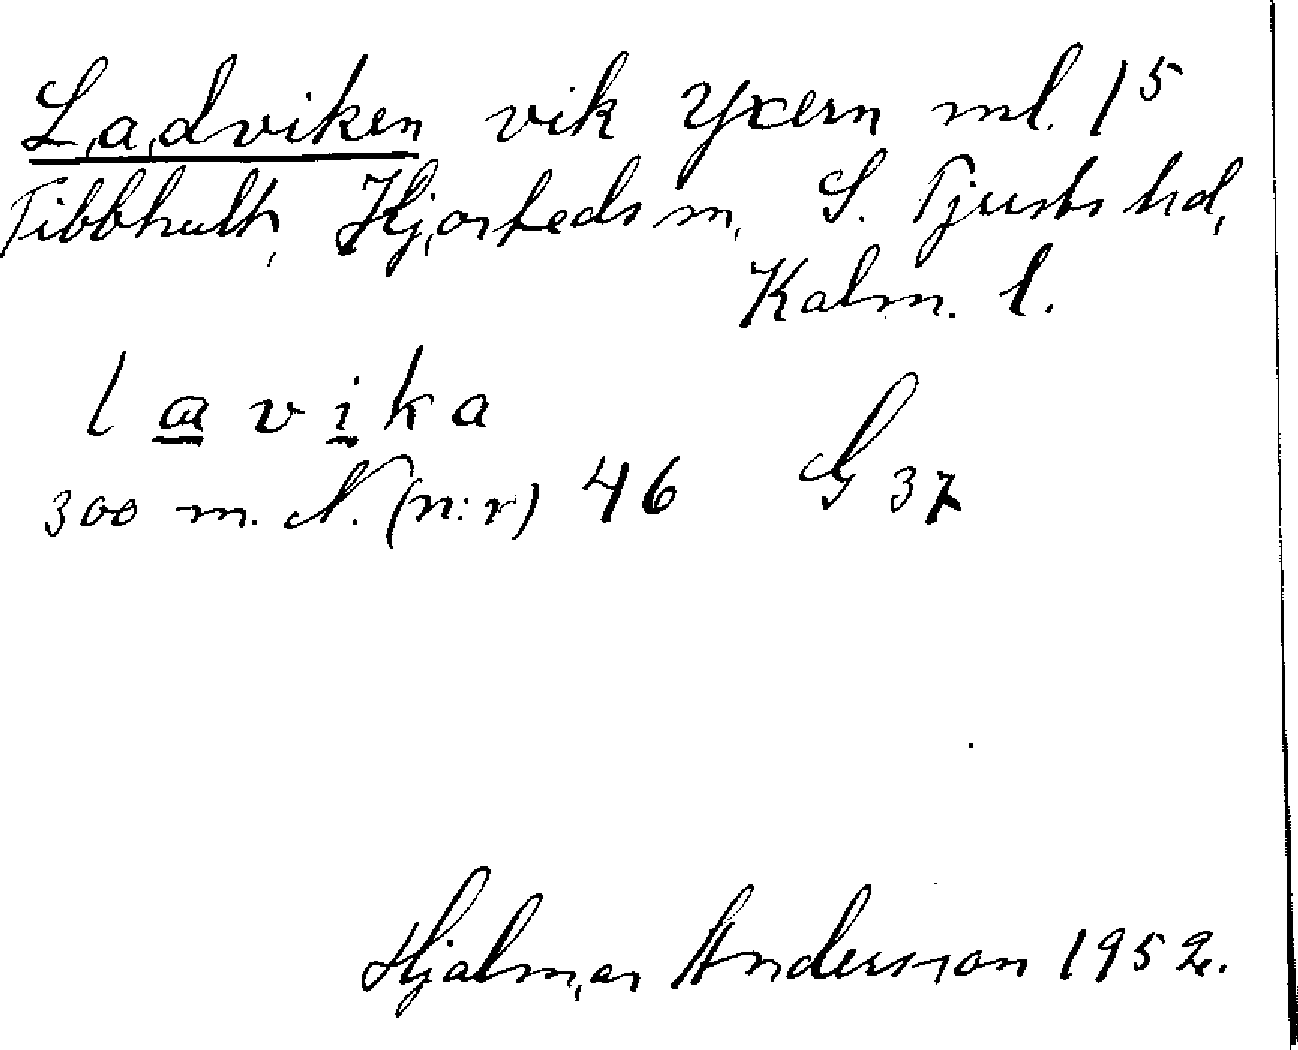 Ladviken vik Yxern ml. 1⁵
Tibbhult, Hjorteds sn, S. Tjusts hd,
Kalm. l.
l a v i k a
300 m. N. (n:r) 46 G 37
Hjalmar Andersson 1952.